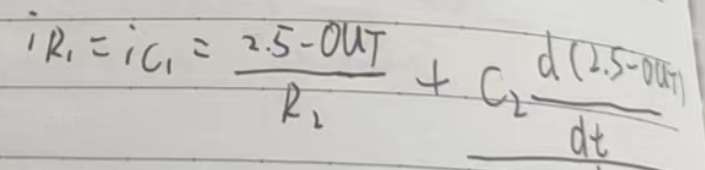 iR₁ = iC₁ = \frac{2.5-OUT}{R₂} + C₂ \frac{d(2.5-OUT)}{dt}